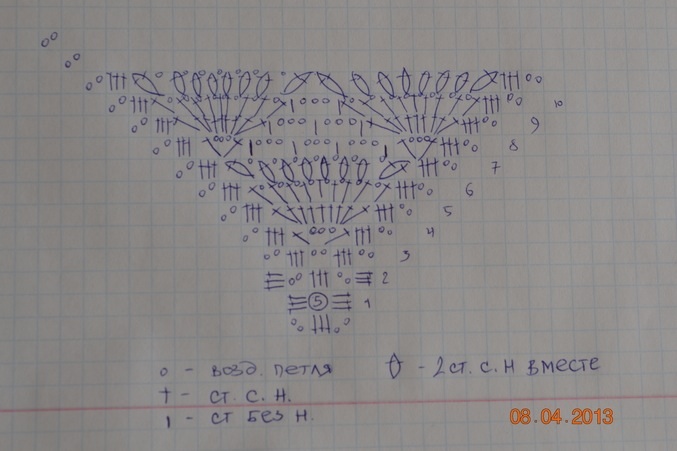 10
9
8
7
6
5
4
3
2
5 1
o - возд. петля
- 2 ст. с. Н вместе
† - ст. с. Н.
ı - ст без Н.
08.04.2013